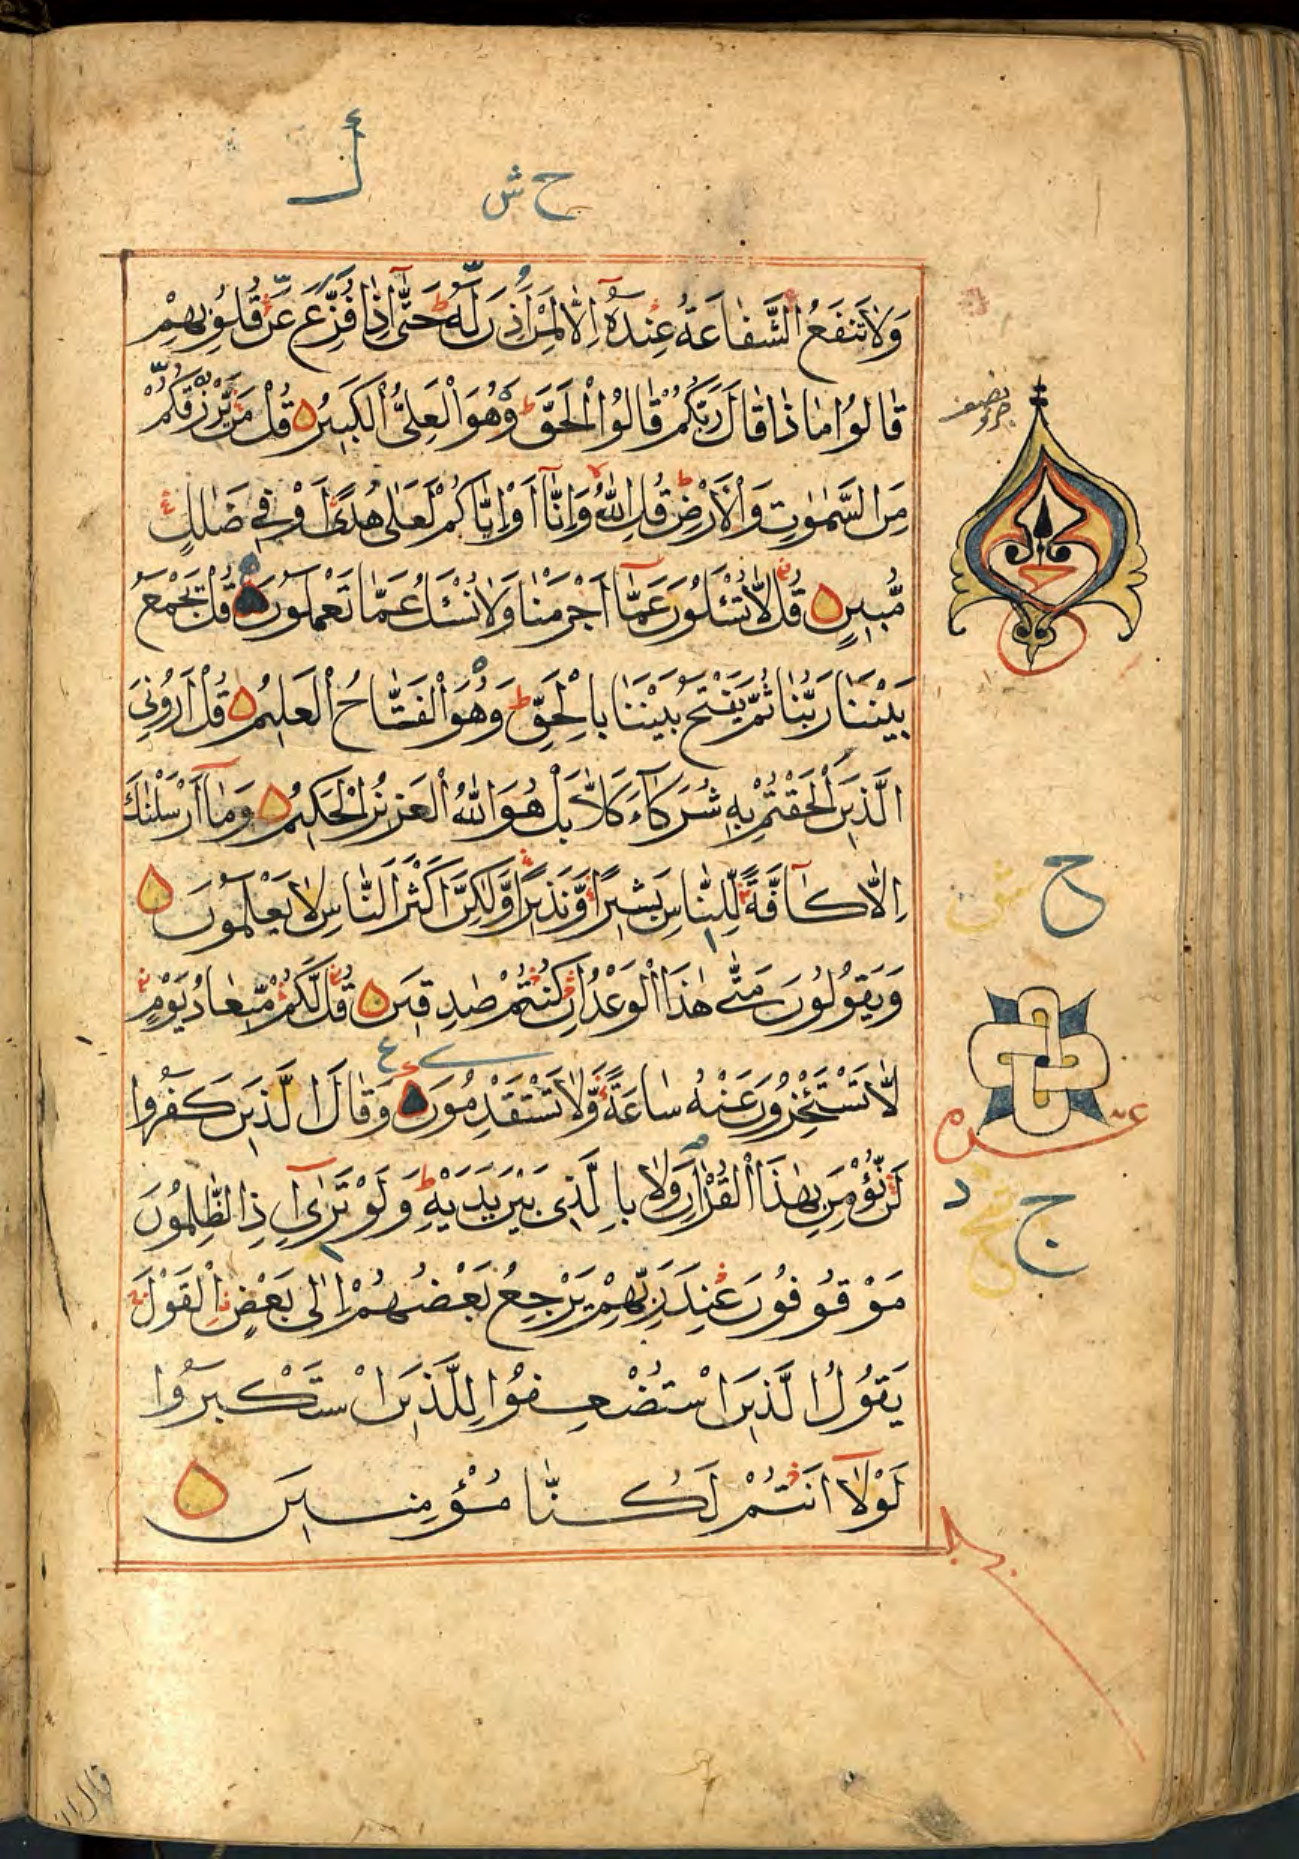 أ
ح ش
وَلَا تَنْفَعُ الشَّفَاعَةُ عِنْدَهُ إِلَّا لِمَنْ أَذِنَ لَهُ ط حَتَّىٰ إِذَا فُزِّعَ عَنْ قُلُوبِهِمْ
قَالُوا مَاذَا قَالَ رَبُّكُمْ قَالُوا الْحَقَّ ط وَهُوَ الْعَلِيُّ الْكَبِيرُ ۝ قُلْ مَنْ يَرْزُقُكُمْ
مِنَ السَّمٰوٰتِ وَالْأَرْضِ ط قُلِ اللّٰهُ لا وَإِنَّا أَوْ إِيَّاكُمْ لَعَلَىٰ هُدًى أَوْ فِي ضَلٰلٍ
مُّبِينٍ ۝ قُلْ لَّا تُسْئَلُونَ عَمَّا أَجْرَمْنَا وَلَا نُسْئَلُ عَمَّا تَعْمَلُونَ ۝ قُلْ يَجْمَعُ
بَيْنَنَا رَبُّنَا ثُمَّ يَفْتَحُ بَيْنَنَا بِالْحَقِّ ط وَهُوَ الْفَتَّاحُ الْعَلِيمُ ۝ قُلْ أَرُونِيَ
الَّذِينَ أَلْحَقْتُمْ بِهِ شُرَكَآءَ كَلَّا بَلْ هُوَ اللّٰهُ الْعَزِيزُ الْحَكِيمُ ۝ وَمَآ أَرْسَلْنٰكَ
إِلَّا كَآفَّةً لِّلنَّاسِ بَشِيرًا وَّنَذِيرًا وَّلٰكِنَّ أَكْثَرَ النَّاسِ لَا يَعْلَمُونَ ۝
وَيَقُولُونَ مَتَىٰ هٰذَا الْوَعْدُ إِنْ كُنْتُمْ صٰدِقِينَ ۝ قُلْ لَّكُمْ مِّيعَادُ يَوْمٍ
لَّا تَسْتَئْخِرُونَ عَنْهُ سَاعَةً وَّلَا تَسْتَقْدِمُونَ ۝ وَقَالَ الَّذِينَ كَفَرُوا
لَنْ نُّؤْمِنَ بِهٰذَا الْقُرْاٰنِ وَلَا بِالَّذِي بَيْنَ يَدَيْهِ ط وَلَوْ تَرَىٰٓ إِذِ الظّٰلِمُونَ
مَوْقُوفُونَ عِنْدَ رَبِّهِمْ يَرْجِعُ بَعْضُهُمْ إِلَىٰ بَعْضٍ الْقَوْلَ
يَقُولُ الَّذِينَ اسْتُضْعِفُوا لِلَّذِينَ اسْتَكْبَرُوا
لَوْلَآ أَنْتُمْ لَكُنَّا مُؤْمِنِينَ ۝
نصف
ح ش
ع
ج د